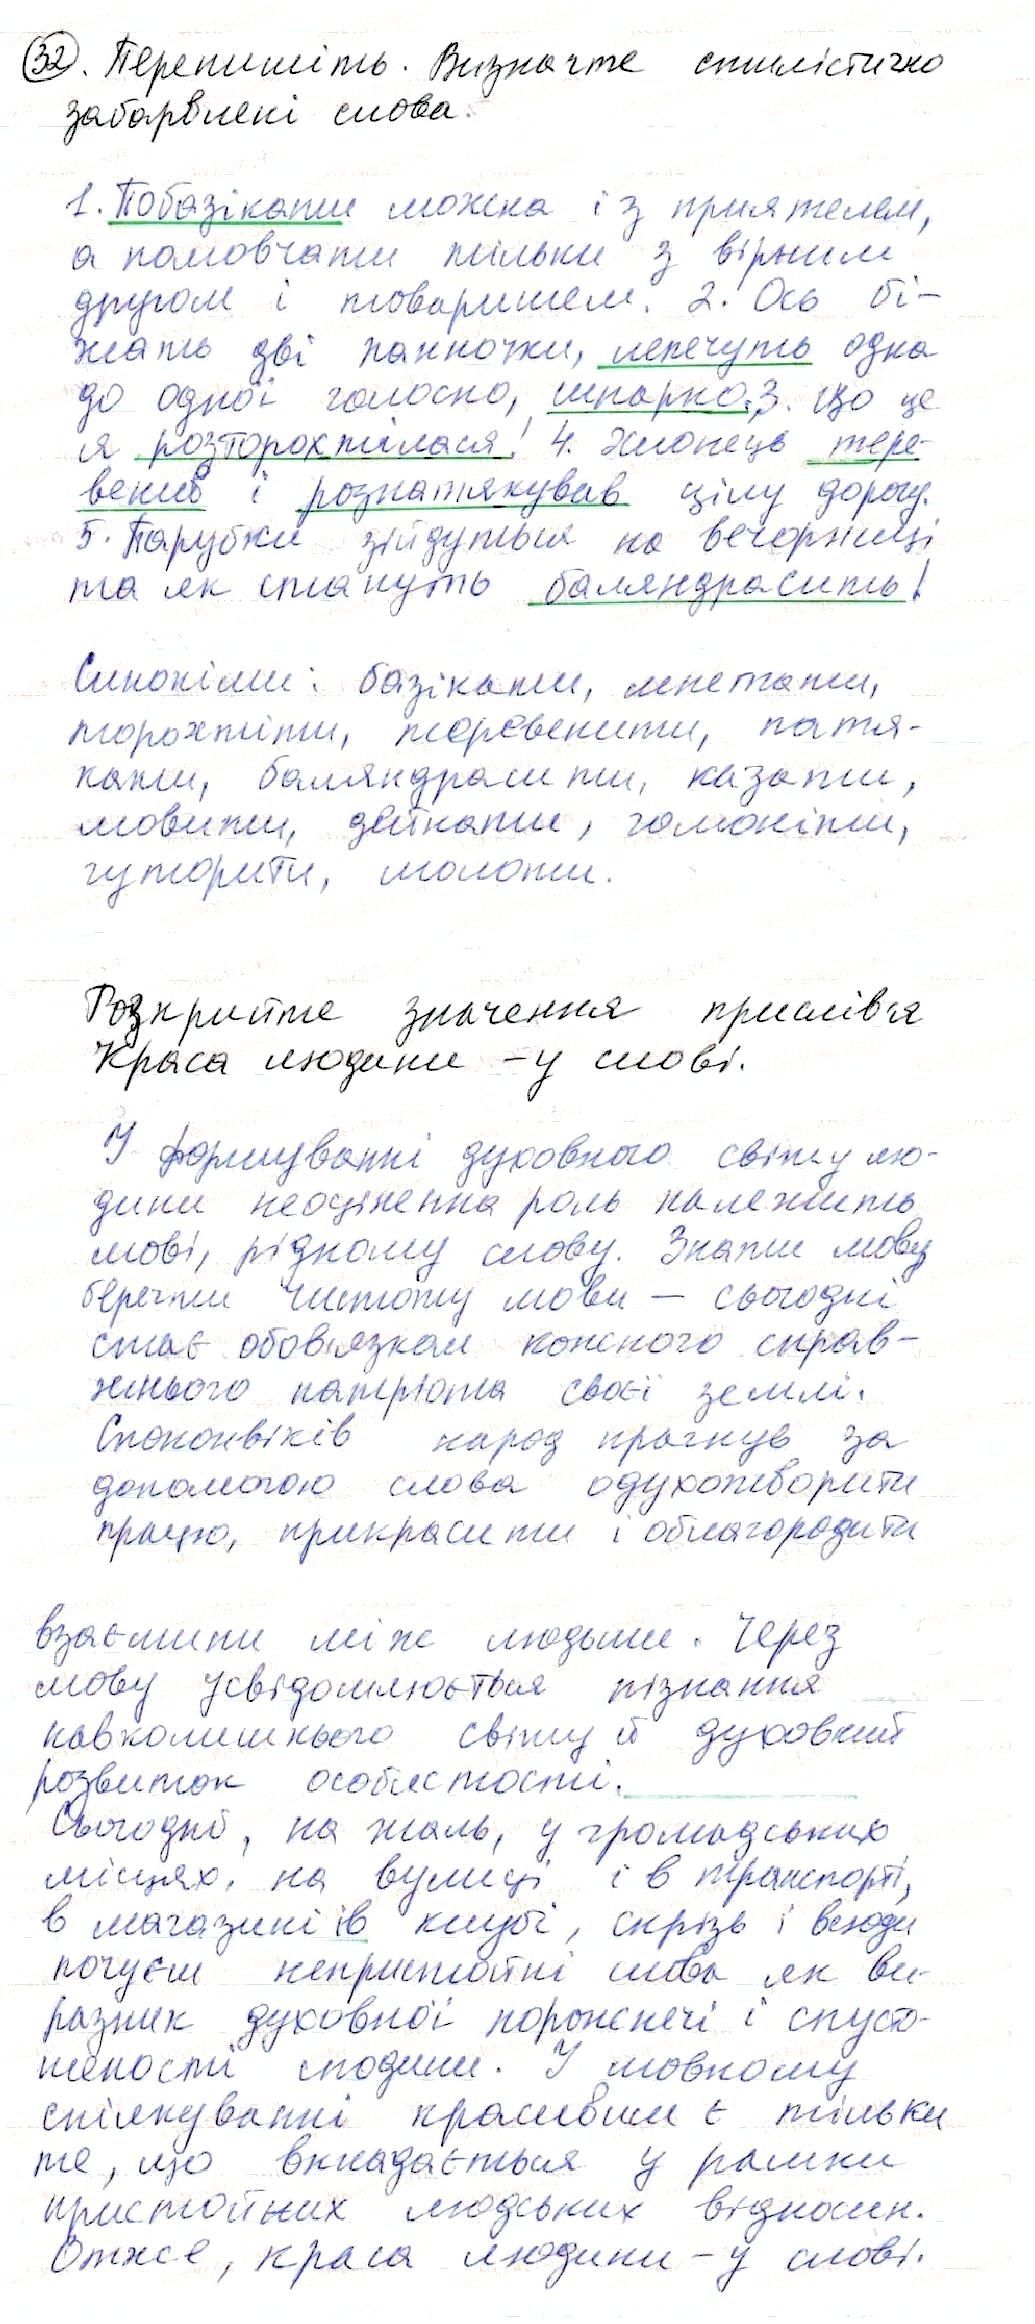 32. Перепишіть. Визначте стилістично
забарвлені слова.
1. Побазікати можна і з приятелем,
а помовчати тільки з вірним
другом і товаришем. 2. Ось бі-
жать дві панночки, лепечуть одна
до одної голосно, шпарко. 3. Що це
я розторохтілася! 4. Хлопець тере-
венив і розпатякував цілу дорогу.
5. Парубки зійдуться на вечорниці
та як стануть баляндрасить!
Синоніми: базікати, лепетати,
торохтіти, теревенити, патя-
кати, баляндрасити, казати,
мовити, гомоніти,
гуторити, молоти.
Розкрийте значення прислів'я
Краса людини - у слові.
У формуванні духовного світу лю-
дини неоціненна роль належить
мові, рідному слову. Знати мову
берегти чистоту мови — сьогодні
стає обов'язком кожного справ-
жнього патріота своєї землі.
Споконвіків народ прагнув за
допомогою слова одухотворити
працю, прикрасити і облагородити
взаємини між людьми. Через
мову усвідомлюється пізнання
навколишнього світу й духовний
розвиток особистості.
Сьогодні, на жаль, у громадських
місцях, на вулиці і в транспорті,
в магазині і в клубі, скрізь і всюди
почуєш непристойні слова як ви-
разник духовної порожнечі і спусто-
шеності людини. У мовному
спілкуванні красивим є тільки
те, що вкладається у рамки
пристойних людських відносин.
Отже, краса людини - у слові.